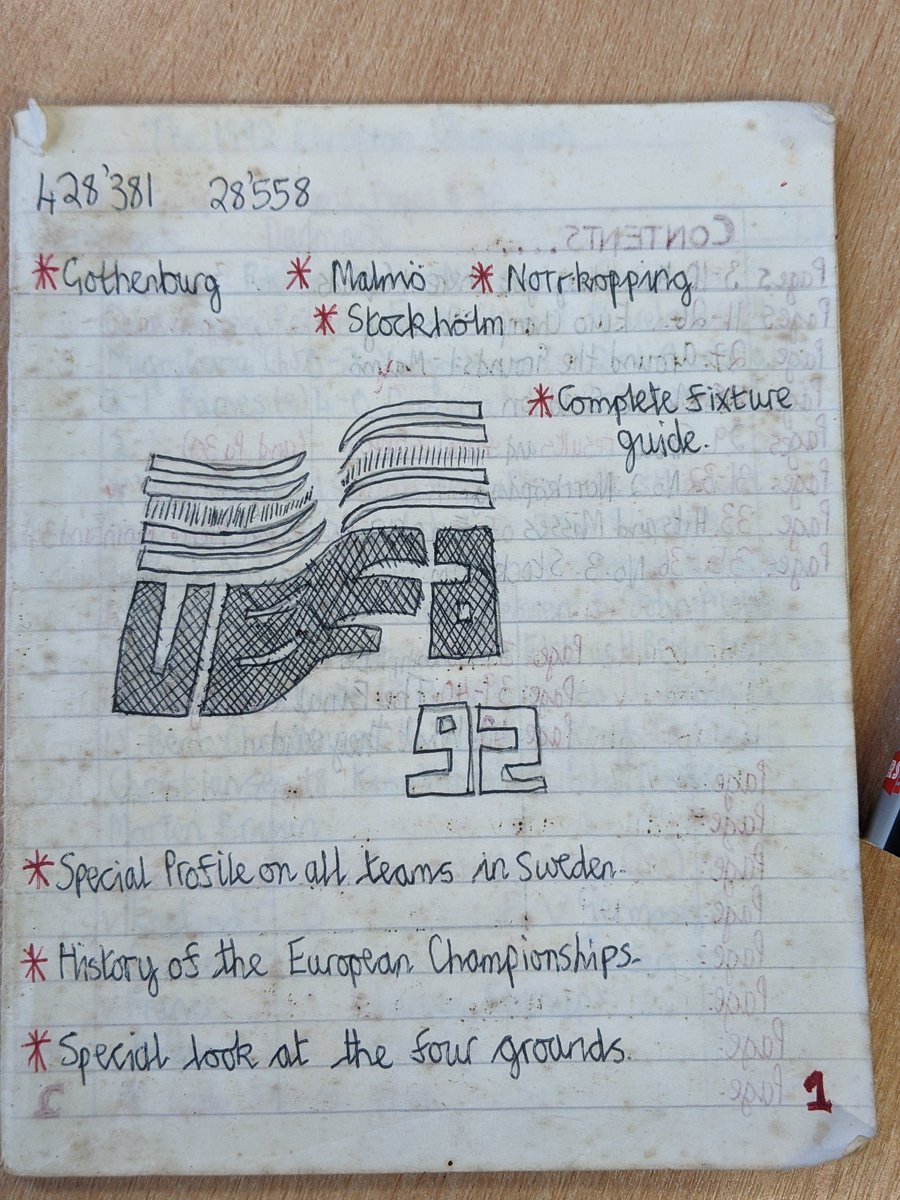 428'381 28'558
* Gothenburg * Malmö * Norrkopping
* Stockhölm
* Complete fixture
guide.
UEFA
92
* Special Profile on all teams in Sweden.
* History of the European Championships.
* Special look at the four grounds.
1
CONTENTS.....